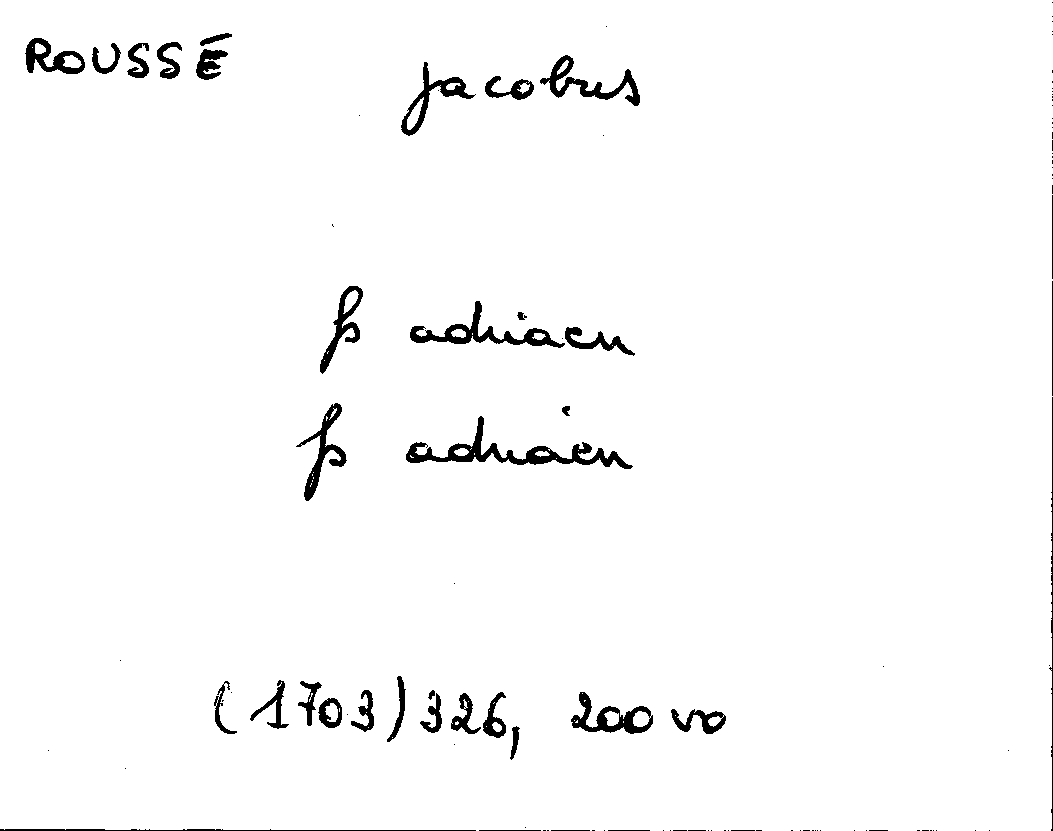 ROUSSÉ jacobus
fs adriaen
fs adriaen
(1703) 326, 200 vo